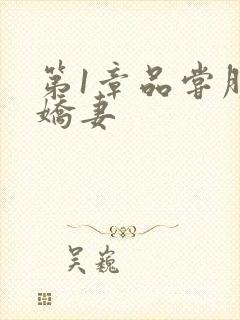 第1章品尝
娇妻
吴巍